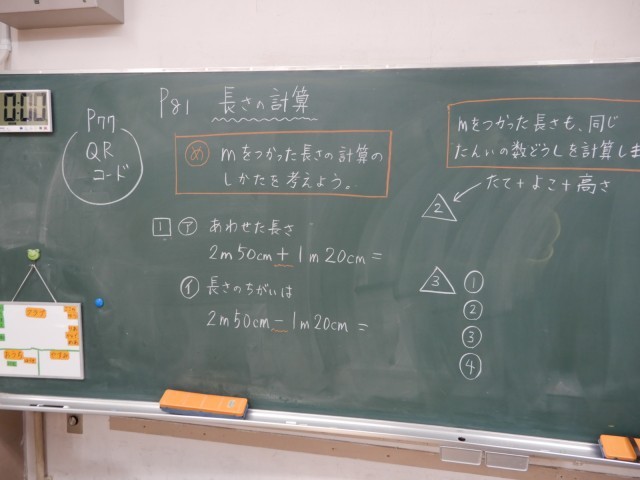 0:00
P77
QR
コード
P81 長さの計算
め mをつかった長さの計算の
しかたを考えよう。
1 ア あわせた長さ
2m50cm+1m20cm=
イ 長さのちがいは
2m50cm-1m20cm=
mをつかった長さも、同じ
たんいの数どうしを計算しま
2 たて+よこ+高さ
3 ①
②
③
④